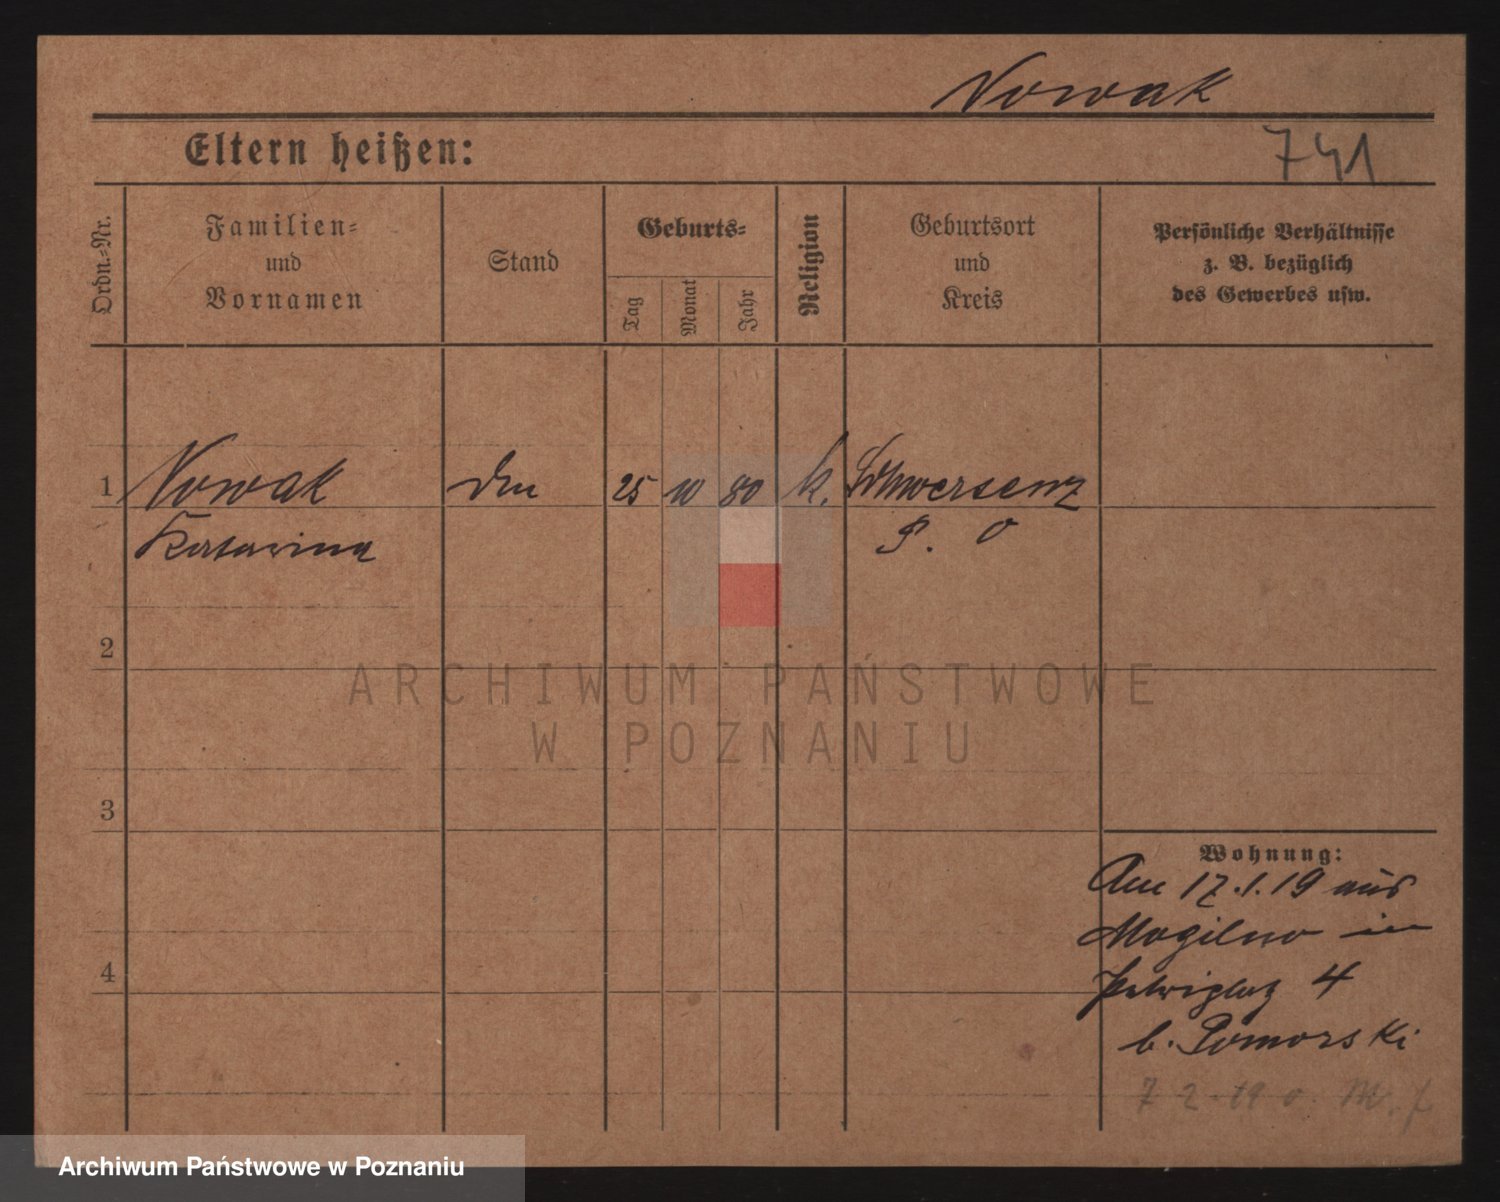 Nowak
Eltern heißen:
741
Ordn.=Nr.
Familien=
und
Vornamen
Stand
Geburts=
Tag
Monat
Jahr
Religion
Geburtsort
und
Kreis
Persönliche Verhältnisse
z. B. bezüglich
des Gewerbes usw.
1 Nowak 25 10 80 k. Schwersenz
Katarina P. O
2
ARCHIWUM PAŃSTWOWE
W POZNANIU
3
Wohnung:
Am 17.1.19 aus
Mogilno in
4
Petriplatz 4
b. Pomorski
7 2 19 o. M. f
Archiwum Państwowe w Poznaniu